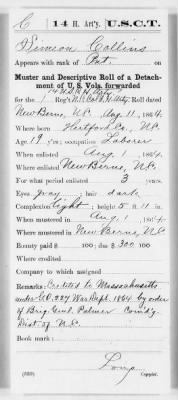 C | 14 H. Art'y. | U.S.C.T.
Simeon Collins
Appears with rank of Pvt.
Muster and Descriptive Roll of a Detach-
ment of U. S. Vols. forwarded
14 U.S. H. Arty.
for the 1 Reg't N.C. Col'd H. Arty. Roll dated
New Berne, N.C. Aug. 11, 1864.
Where born Hertford Co., N.C.
Age 19 y'rs; occupation Laborer
When enlisted Aug. 1, 1864.
Where enlisted New Berne, N.C.
For what period enlisted 3 years.
Eyes gray; hair dark
Complexion light; height 5 ft. 11 in.
When mustered in Aug. 1, 1864.
Where mustered in New Berne, N.C.
Bounty paid $ 100; due $ 300 100
Where credited
Company to which assigned
Remarks: Credited to Massachusetts
under G.O. 227 War Dept. 1864 by order
of Brig. Genl. Palmer Com'd'g
Dist. of N.C.
Book mark:
Long
(339) Copyist.